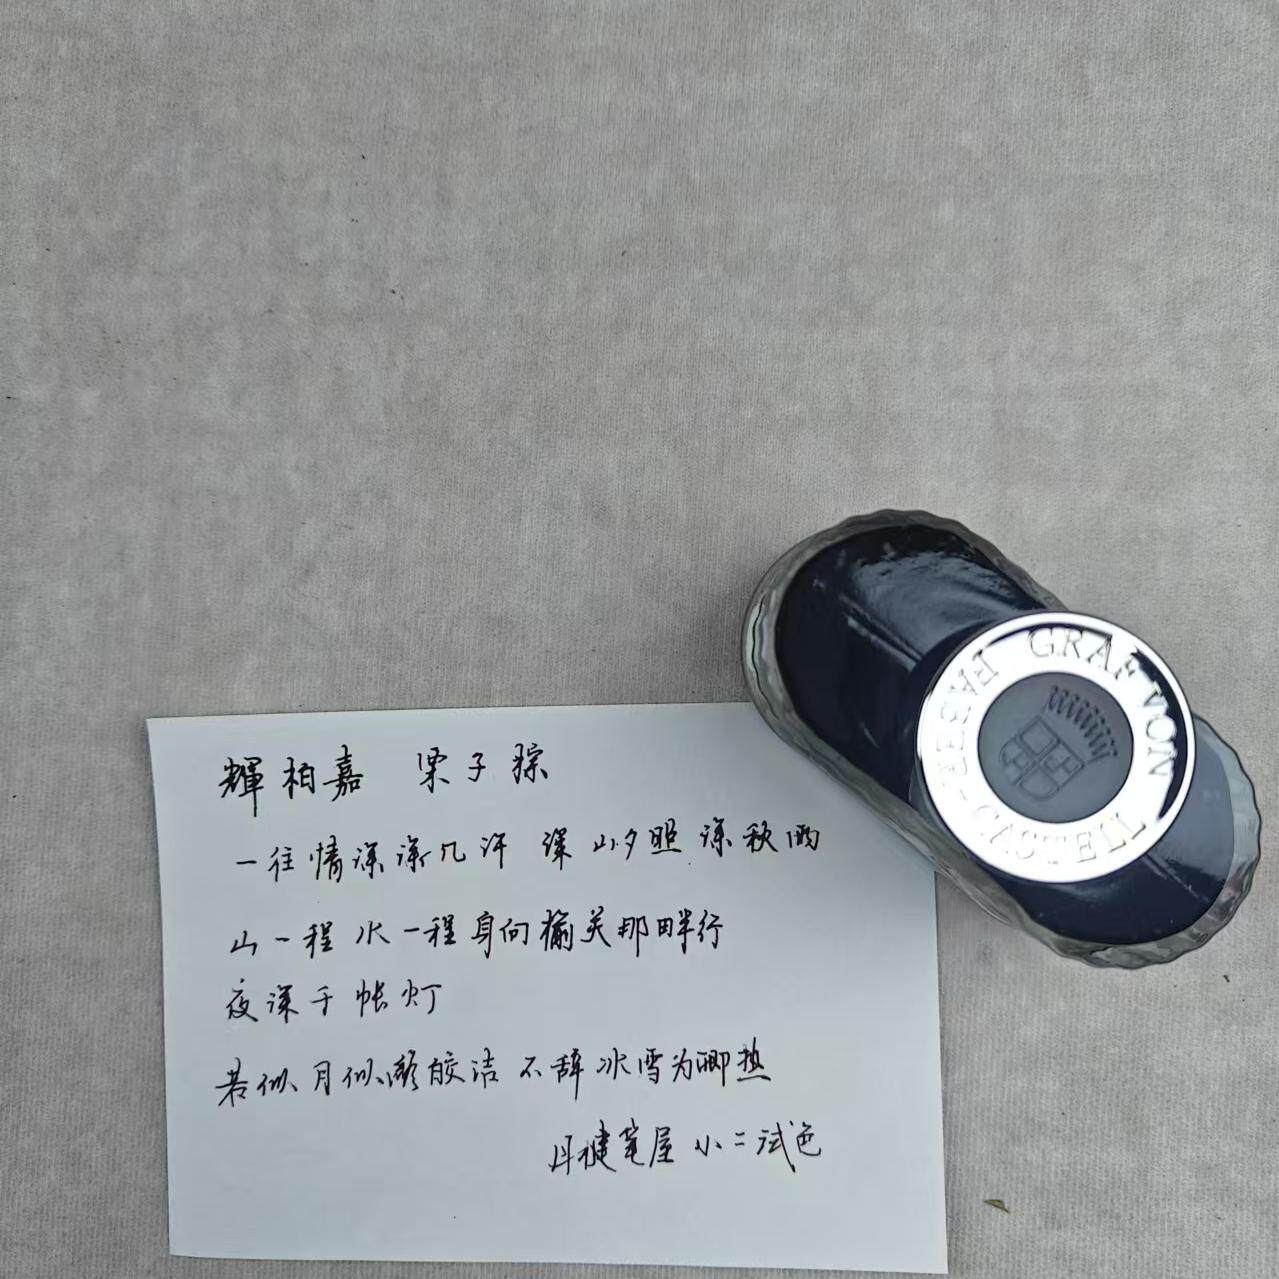 輝柏嘉 栗子棕
一往情深深几许 深山夕照深秋雨
山一程 水一程 身向榆关那畔行
夜深千帐灯
若似月似 皎洁 不辞冰雪为卿热
月 笔屋 小二试色
GRAF VON FABER-CASTELL